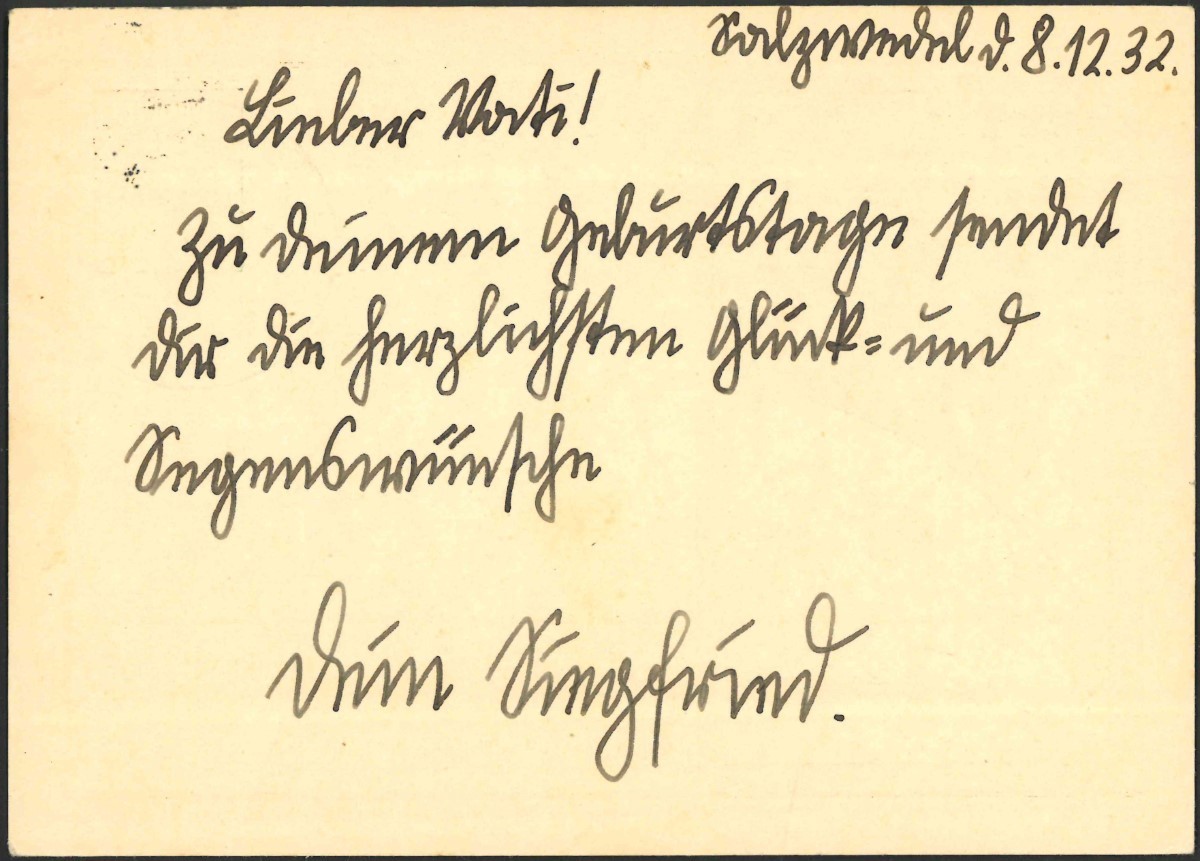 Salzwedel d. 8.12.32.
Lieber Vati!
Zu deinem Geburtstage sendet
dir die herzlichsten Glück= und
Segenswünsche
dein Siegfried.